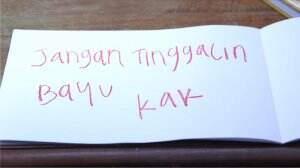 Jangan Tinggalin
Bayu Kak